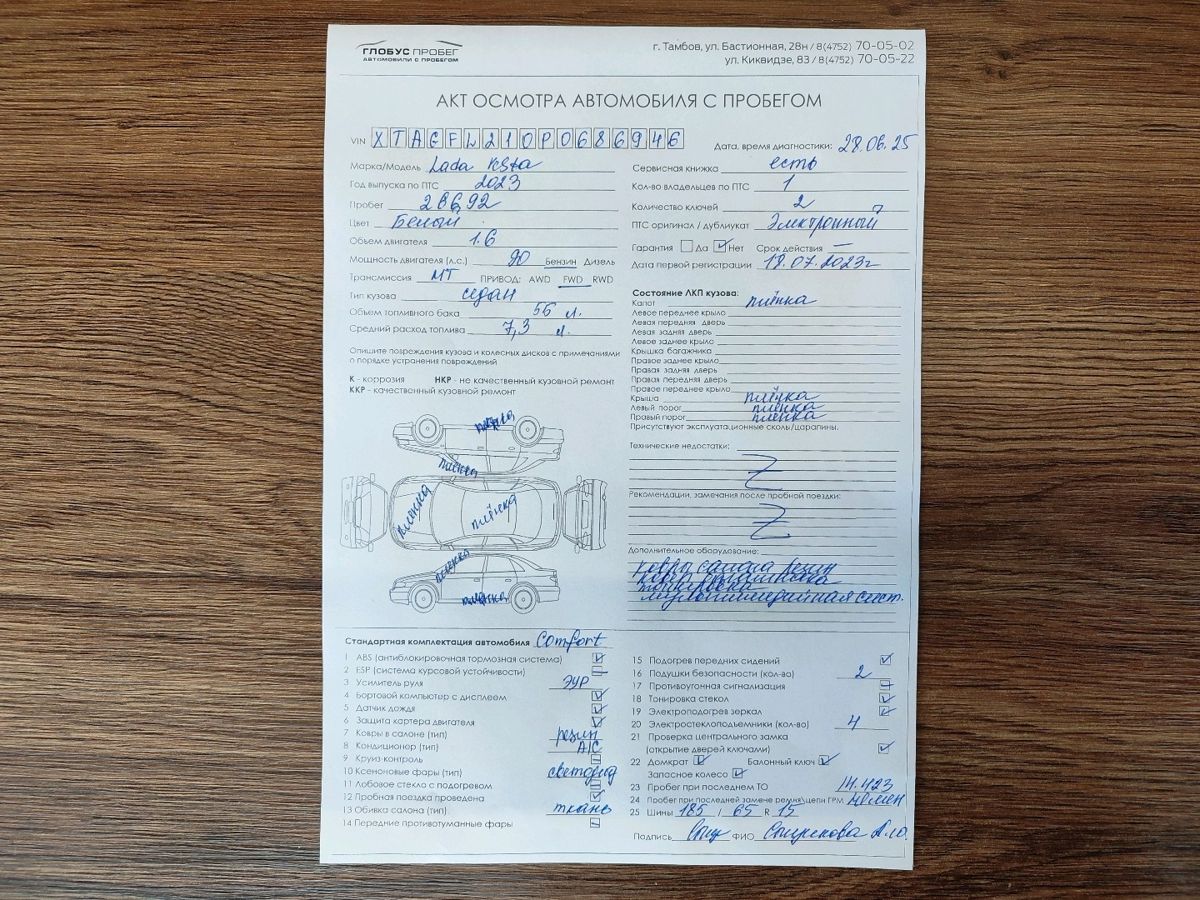 ГЛОБУС ПРОБЕГ
АВТОМОБИЛИ С ПРОБЕГОМ
г. Тамбов, ул. Бастионная, 28н / 8(4752) 70-05-02
ул. Киквидзе, 83 / 8(4752) 70-05-22
АКТ ОСМОТРА АВТОМОБИЛЯ С ПРОБЕГОМ
VIN XTAGFL210P0686946
Дата, время диагностики: 28.06.25
Марка/Модель Lada Vesta
Год выпуска по ПТС 2023
Пробег 28692
Цвет Белый
Объем двигателя 1.6
Мощность двигателя (л.с.) 90 Бензин Дизель
Трансмиссия МТ ПРИВОД: AWD FWD RWD
Тип кузова седан
Объем топливного бака 56 л.
Средний расход топлива 7,3 л.
Сервисная книжка есть
Кол-во владельцев по ПТС 1
Количество ключей 2
ПТС оригинал / дубликат Электронный
Гарантия Да Нет Срок действия —
Дата первой регистрации 18.07.2023г
Опишите повреждения кузова и колесных дисков с примечаниями
о порядке устранения повреждений
К - коррозия НКР - не качественный кузовной ремонт
ККР - качественный кузовной ремонт
плёнка
плёнка
плёнка
плёнка
плёнка
плёнка
Состояние ЛКП кузова:
Капот плёнка
Левое переднее крыло
Левая передняя дверь
Левая задняя дверь
Левое заднее крыло
Крышка багажника
Правое заднее крыло
Правая задняя дверь
Правая передняя дверь
Правое переднее крыло
Крыша плёнка
Левый порог пленка
Правый порог пленка
Присутствуют эксплуатационные сколы/царапины.
Технические недостатки:
Z
Рекомендации, замечания после пробной поездки:
Z
Дополнительное оборудование:
ковры салона резин
ковер багажника
тонировка
мультимедийная сист.
Стандартная комплектация автомобиля Comfort
1 ABS (антиблокировочная тормозная система)
2 ESP (система курсовой устойчивости)
3 Усилитель руля ЭУР
4 Бортовой компьютер с дисплеем
5 Датчик дождя
6 Защита картера двигателя
7 Ковры в салоне (тип) резин
8 Кондиционер (тип) A/C
9 Круиз-контроль
10 Ксеноновые фары (тип) светодиод
11 Лобовое стекло с подогревом
12 Пробная поездка проведена
13 Обивка салона (тип) ткань
14 Передние противотуманные фары
15 Подогрев передних сидений
16 Подушки безопасности (кол-во) 2
17 Противоугонная сигнализация
18 Тонировка стекол
19 Электроподогрев зеркал
20 Электростеклоподъемники (кол-во) 4
21 Проверка центрального замка
(открытие дверей ключами)
22 Домкрат Балонный ключ
Запасное колесо
23 Пробег при последнем ТО 14.423
24 Пробег при последней замене ремня\цепи ГРМ
25 Шины 185 / 65 R 15
Подпись ФИО